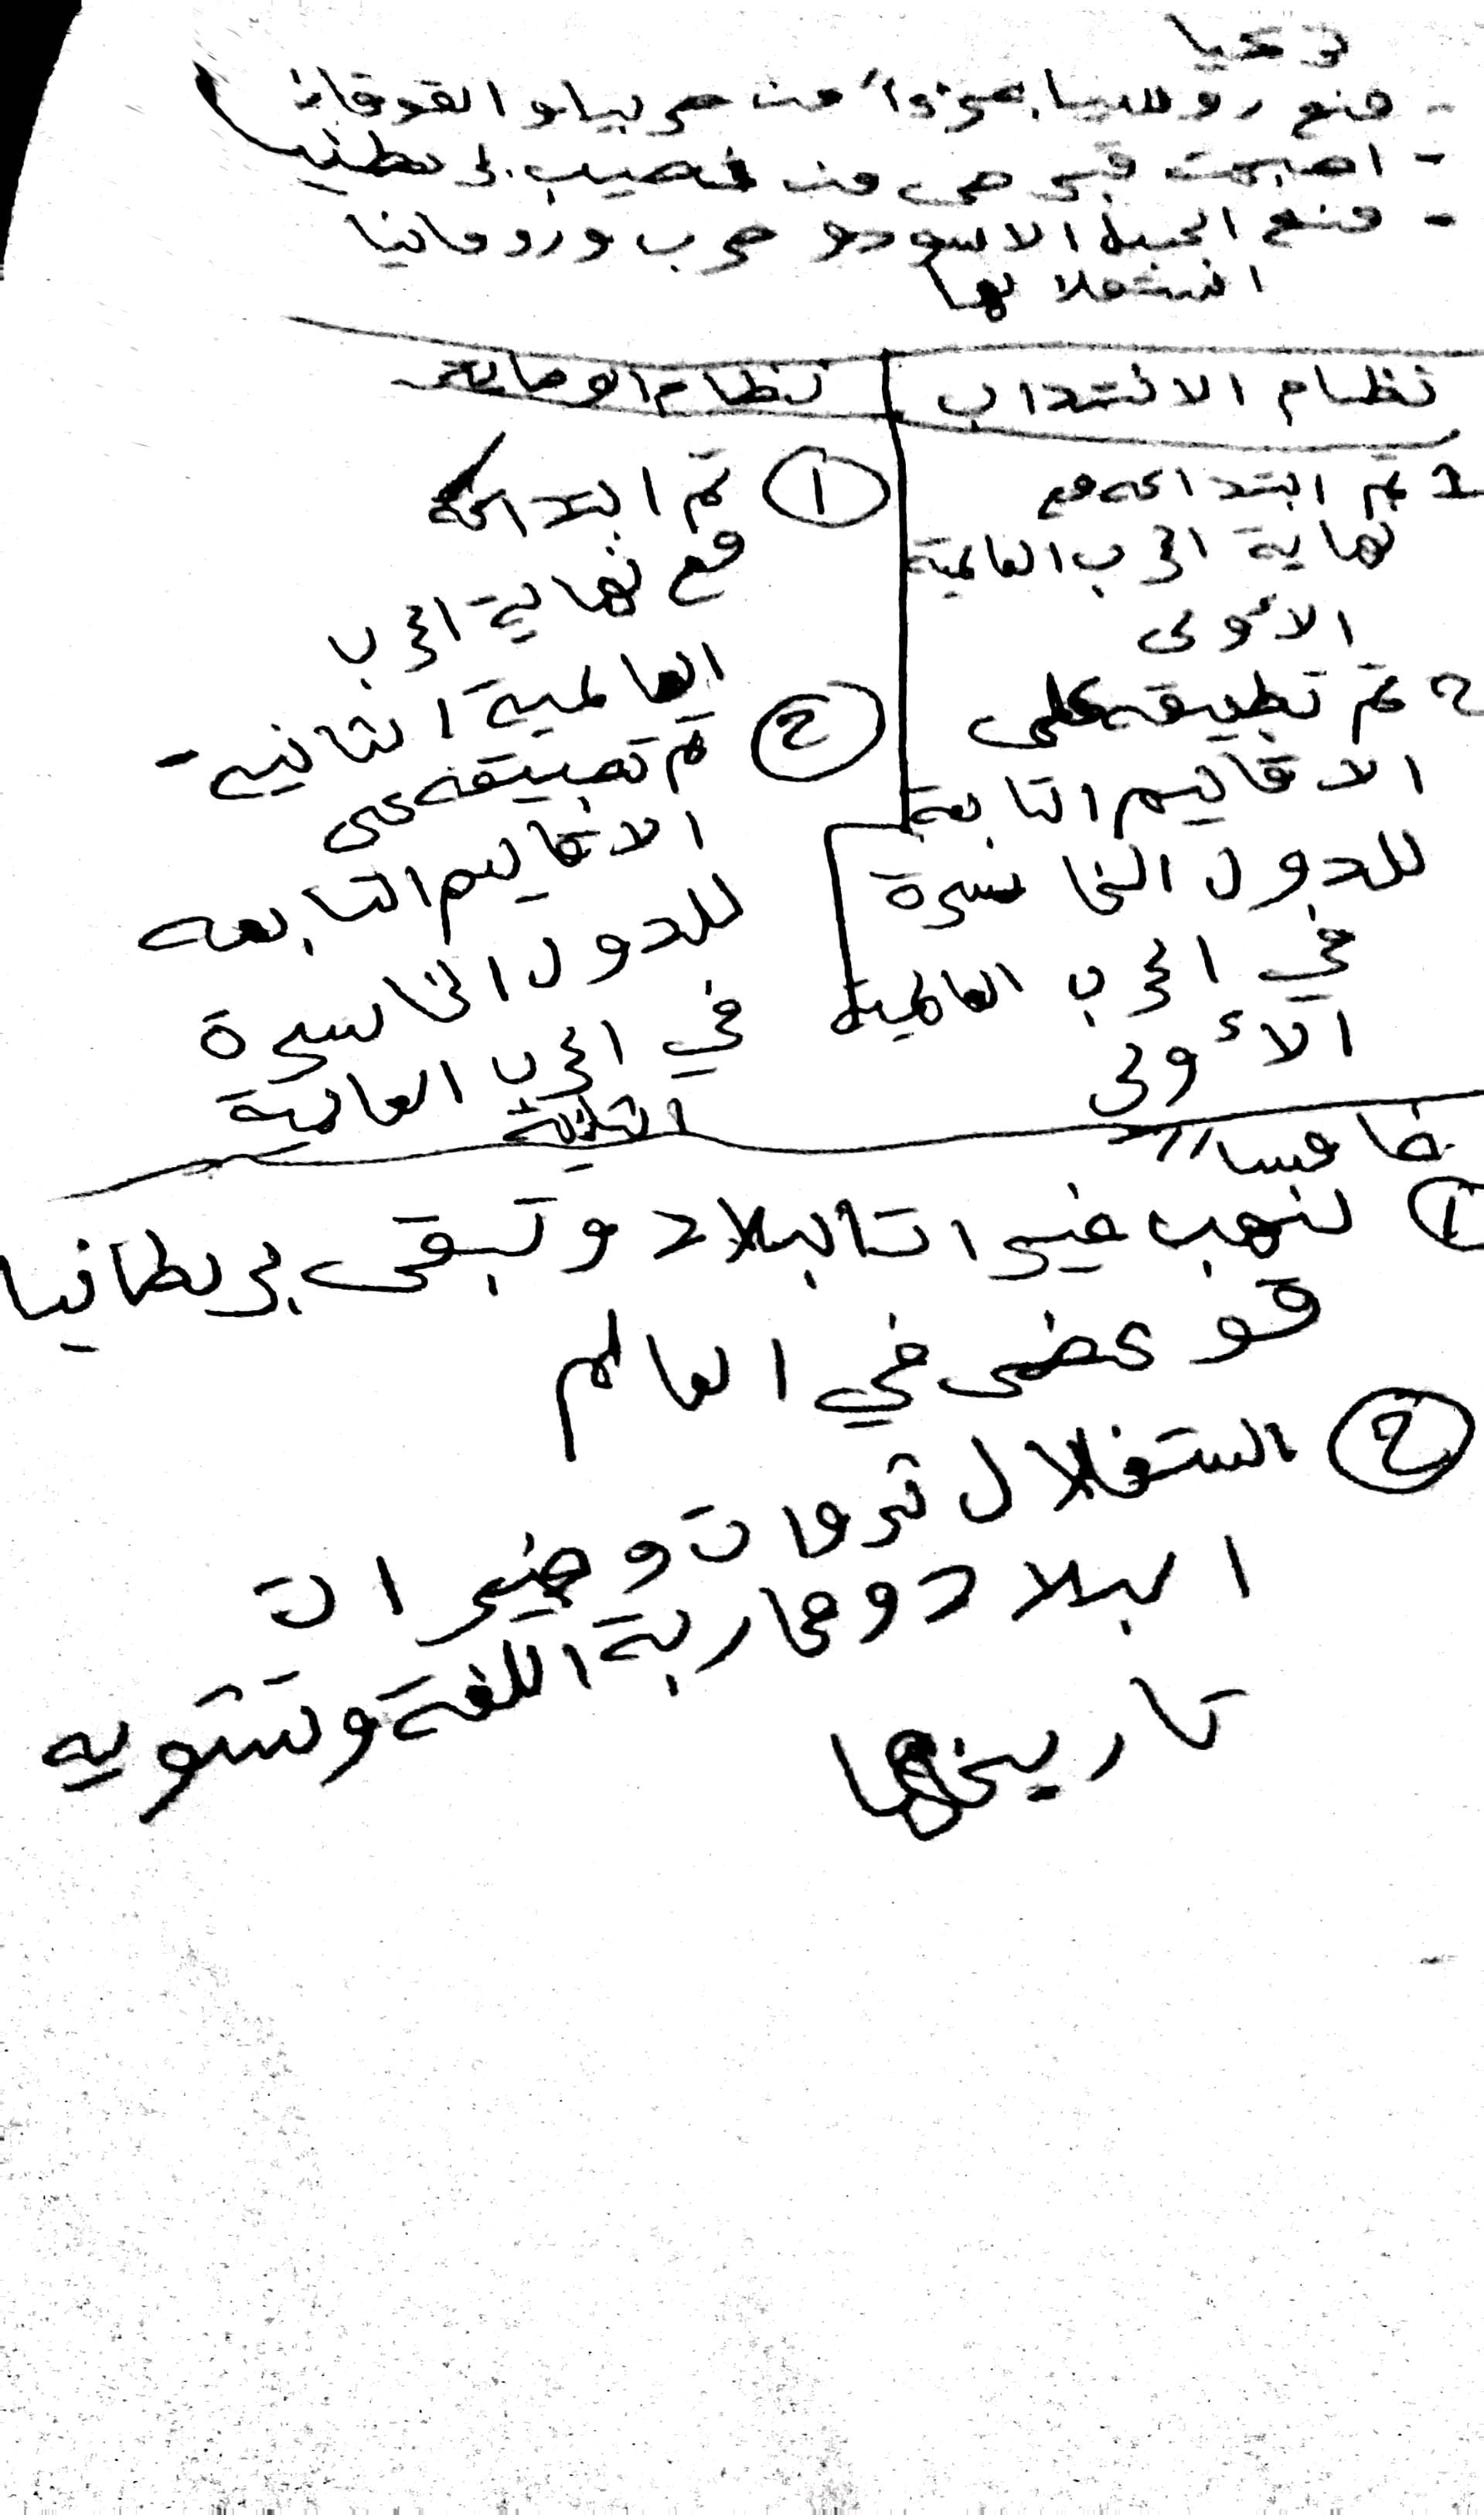 تركيا
- منح روسيا جزءا من صربيا و القوقاز
- اصبحت قبرص من نصيب بريطانيا
- منح الجبل الاسود و صرب ورومانيا
استقلالها
نظام الانتداب
1 تم ابتداعه مع
نهاية الحرب العالمية
الأولى
2 تم تطبيقه على
الاقاليم التابعة
للدول الخاسرة
في الحرب العالمية
الأولى
نظام الوصاية
① تم ابتداعه
مع نهاية الحرب
العالمية الثانية -
② تم تطبيقه على
الاقاليم التابعه
للدول الخاسرة
في الحرب العالمية
الثانية
خامسا //
① لنهب خيرات البلاد وتبقى بريطانيا
قو عضمى في العالم
② استغلال ثروات وخيرات
البلاد ومحاربة اللغة وتشويه
تاريخها